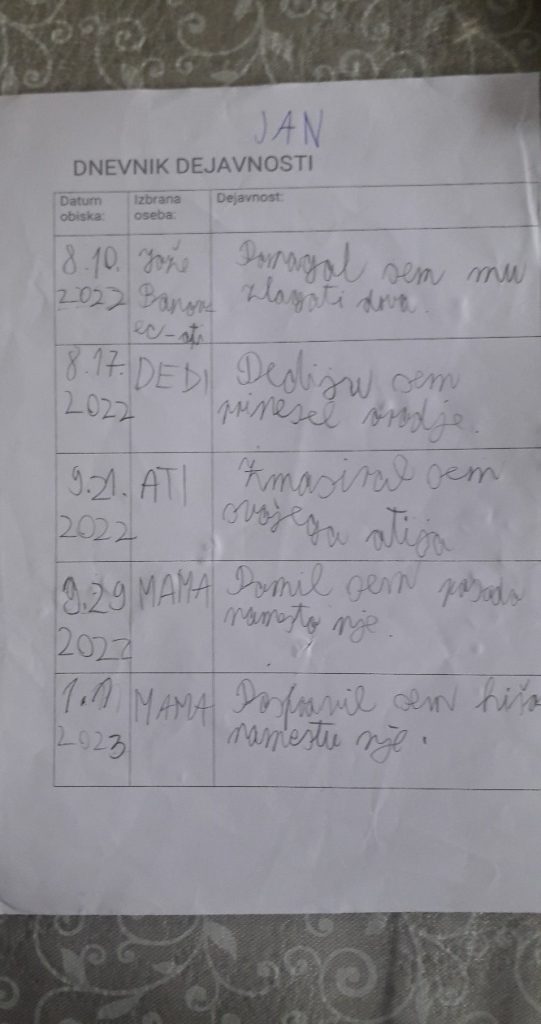 JAN
DNEVNIK DEJAVNOSTI
Datum obiska: Izbrana oseba: Dejavnost:
8.10. Jože Pomagal sem mu
2022 Banov zlagati drva.
ec-ati
8.17. DEDI Dediju sem
2022 prinesel orodje.
9.21. ATI Zmasiral sem
2022 svojega atija
9.29 MAMA Pomil sem posodo
2022 namesto nje.
1.11 MAMA Pospravil sem hišo
2023 namestu nje.